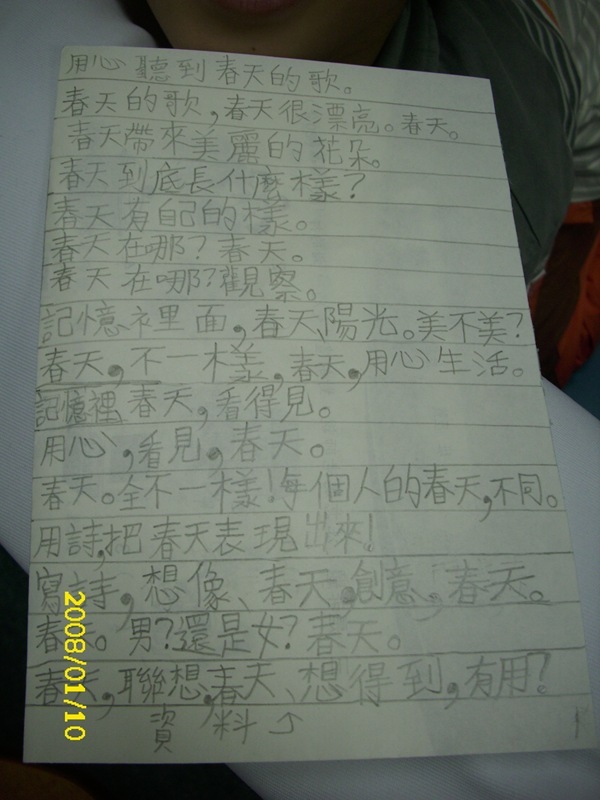 用心聽到春天的歌。
春天的歌,春天很漂亮。春天。
春天帶來美麗的花朵。
春天到底長什麼樣?
春天有自己的樣。
春天在哪?春天。
春天在哪?觀察。
記憶裡面,春天、陽光。美不美?
春天,不一樣,春天,用心生活。
記憶裡春天,看得見。
用心,看見,春天。
春天。全不一樣!每個人的春天,不同。
用詩,把春天表現出來!
寫詩,想像、春天,創意、春天。
春天。男?還是女?春天。
春天,聯想,春天、想得到,有用?
資料
2008/01/10